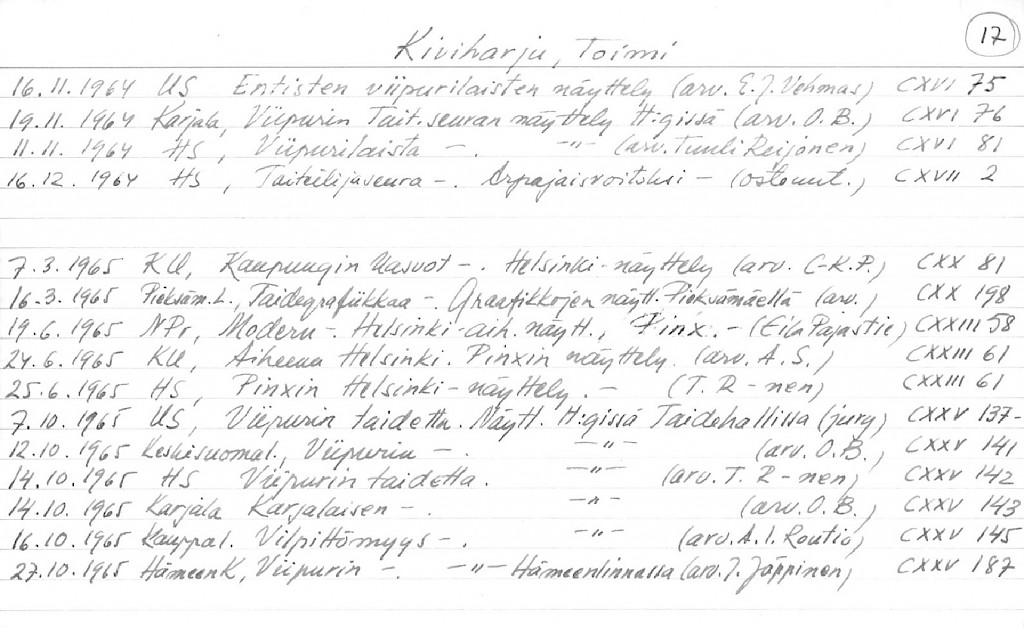 17
Kiviharju, Toimi
16.11.1964 US Entisten viipurilaisten näyttely (arv. E.J. Vehmas) CXVI 75
19.11.1964 Karjala, Viipurin Tait.seuran näyttely H:gissä (arv. O.B.) CXVI 76
11.11.1964 HS, Viipurilaista -. -"- (arv. Tuuli Reijonen) CXVI 81
16.12.1964 HS, Taiteilijaseura -. Arpajaisvoitoksi - (ostanut.) CXVII 2
7.3.1965 KU, Kaupungin kasvot -. Helsinki-näyttely (arv. C-K.P.) CXX 81
16.3.1965 Pieksäm.L., Taidegrafiikkaa -. Graafikkojen näytt. Pieksämäellä (arv.) CXX 198
19.6.1965 NPr, Modern -. Helsinki-aih. näytt., Pinx. - (Eila Pajastie) CXXIII 58
24.6.1965 KU, Aiheena Helsinki. Pinxin näyttely. (arv. A.S.) CXXIII 61
25.6.1965 HS, Pinxin Helsinki-näyttely. - (T. R-nen) CXXIII 61
7.10.1965 US, Viipurin taidetta. Näytt. H:gissä Taidehallissa (jury) CXXV 137-
12.10.1965 Keskisuomal., Viipurin -. -"- (arv. O.B.) CXXV 141
14.10.1965 HS Viipurin taidetta. -"- (arv. T. R-nen) CXXV 142
14.10.1965 Karjala Karjalaisen -. -"- (arv. O.B.) CXXV 143
16.10.1965 Kauppal. Vilpittömyys -. -"- (arv. A.I. Routio) CXXV 145
27.10.1965 HämeenK, Viipurin -. -"- Hämeenlinnassa (arv. J. Jäppinen) CXXV 187